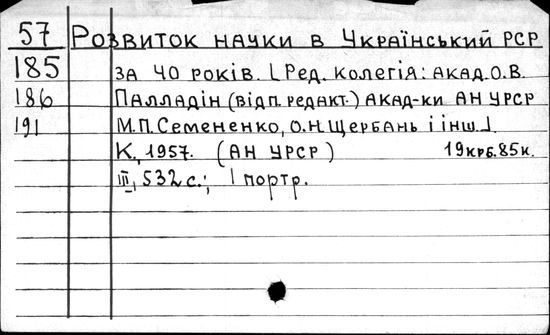 57 Розвиток науки в Український РСР
185 за 40 років. [Ред. колегія: акад. О.В.
186 Палладін (відп. редакт.) акад-ки АН УРСР
191 М.П. Семененко, О.Н. Щербань і інш.].
К., 1957. (АН УРСР) 19крб.85к.
III, 532 с.; 1 портр.